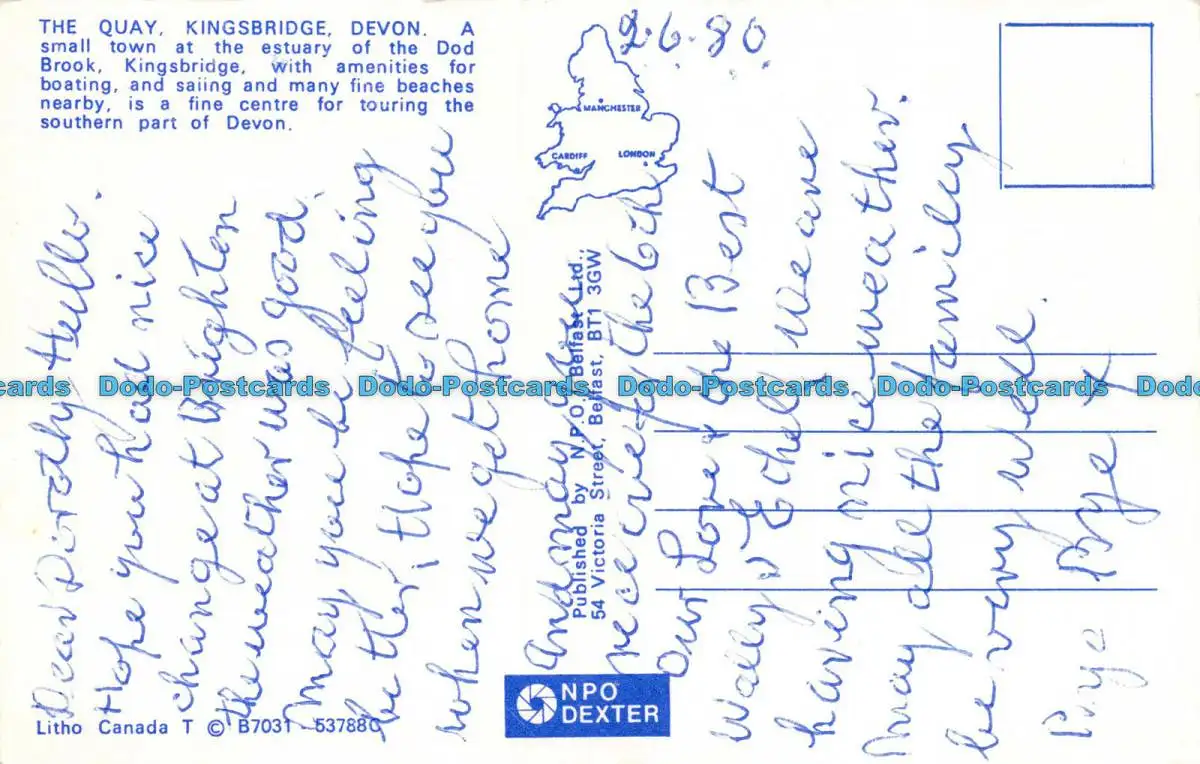 THE QUAY, KINGSBRIDGE, DEVON. A
small town at the estuary of the Dod
Brook, Kingsbridge, with amenities for
boating, and saiing and many fine beaches
nearby, is a fine centre for touring the
southern part of Devon.
2.6.80
MANCHESTER
CARDIFF LONDON
Dear Dorothy Hello.
Hope you had nice
change at Brighton
the weather was good.
may you be feeling
better, Hope to see you
when we get home
And may
receive the
Our Love & the Best
Wally & Ethel We are
having nice weather.
may all the family
be very well.
Bye Bye X
Published by N.P.O. Belfast Ltd.,
54 Victoria Street, Belfast, BT1 3GW
Litho Canada T © B7031 53788C
NPO
DEXTER
Dodo-Postcards Dodo-Postcards Dodo-Postcards Dodo-Postcards Dodo-Postcards Dodo-Postcards Dodo-Postcards